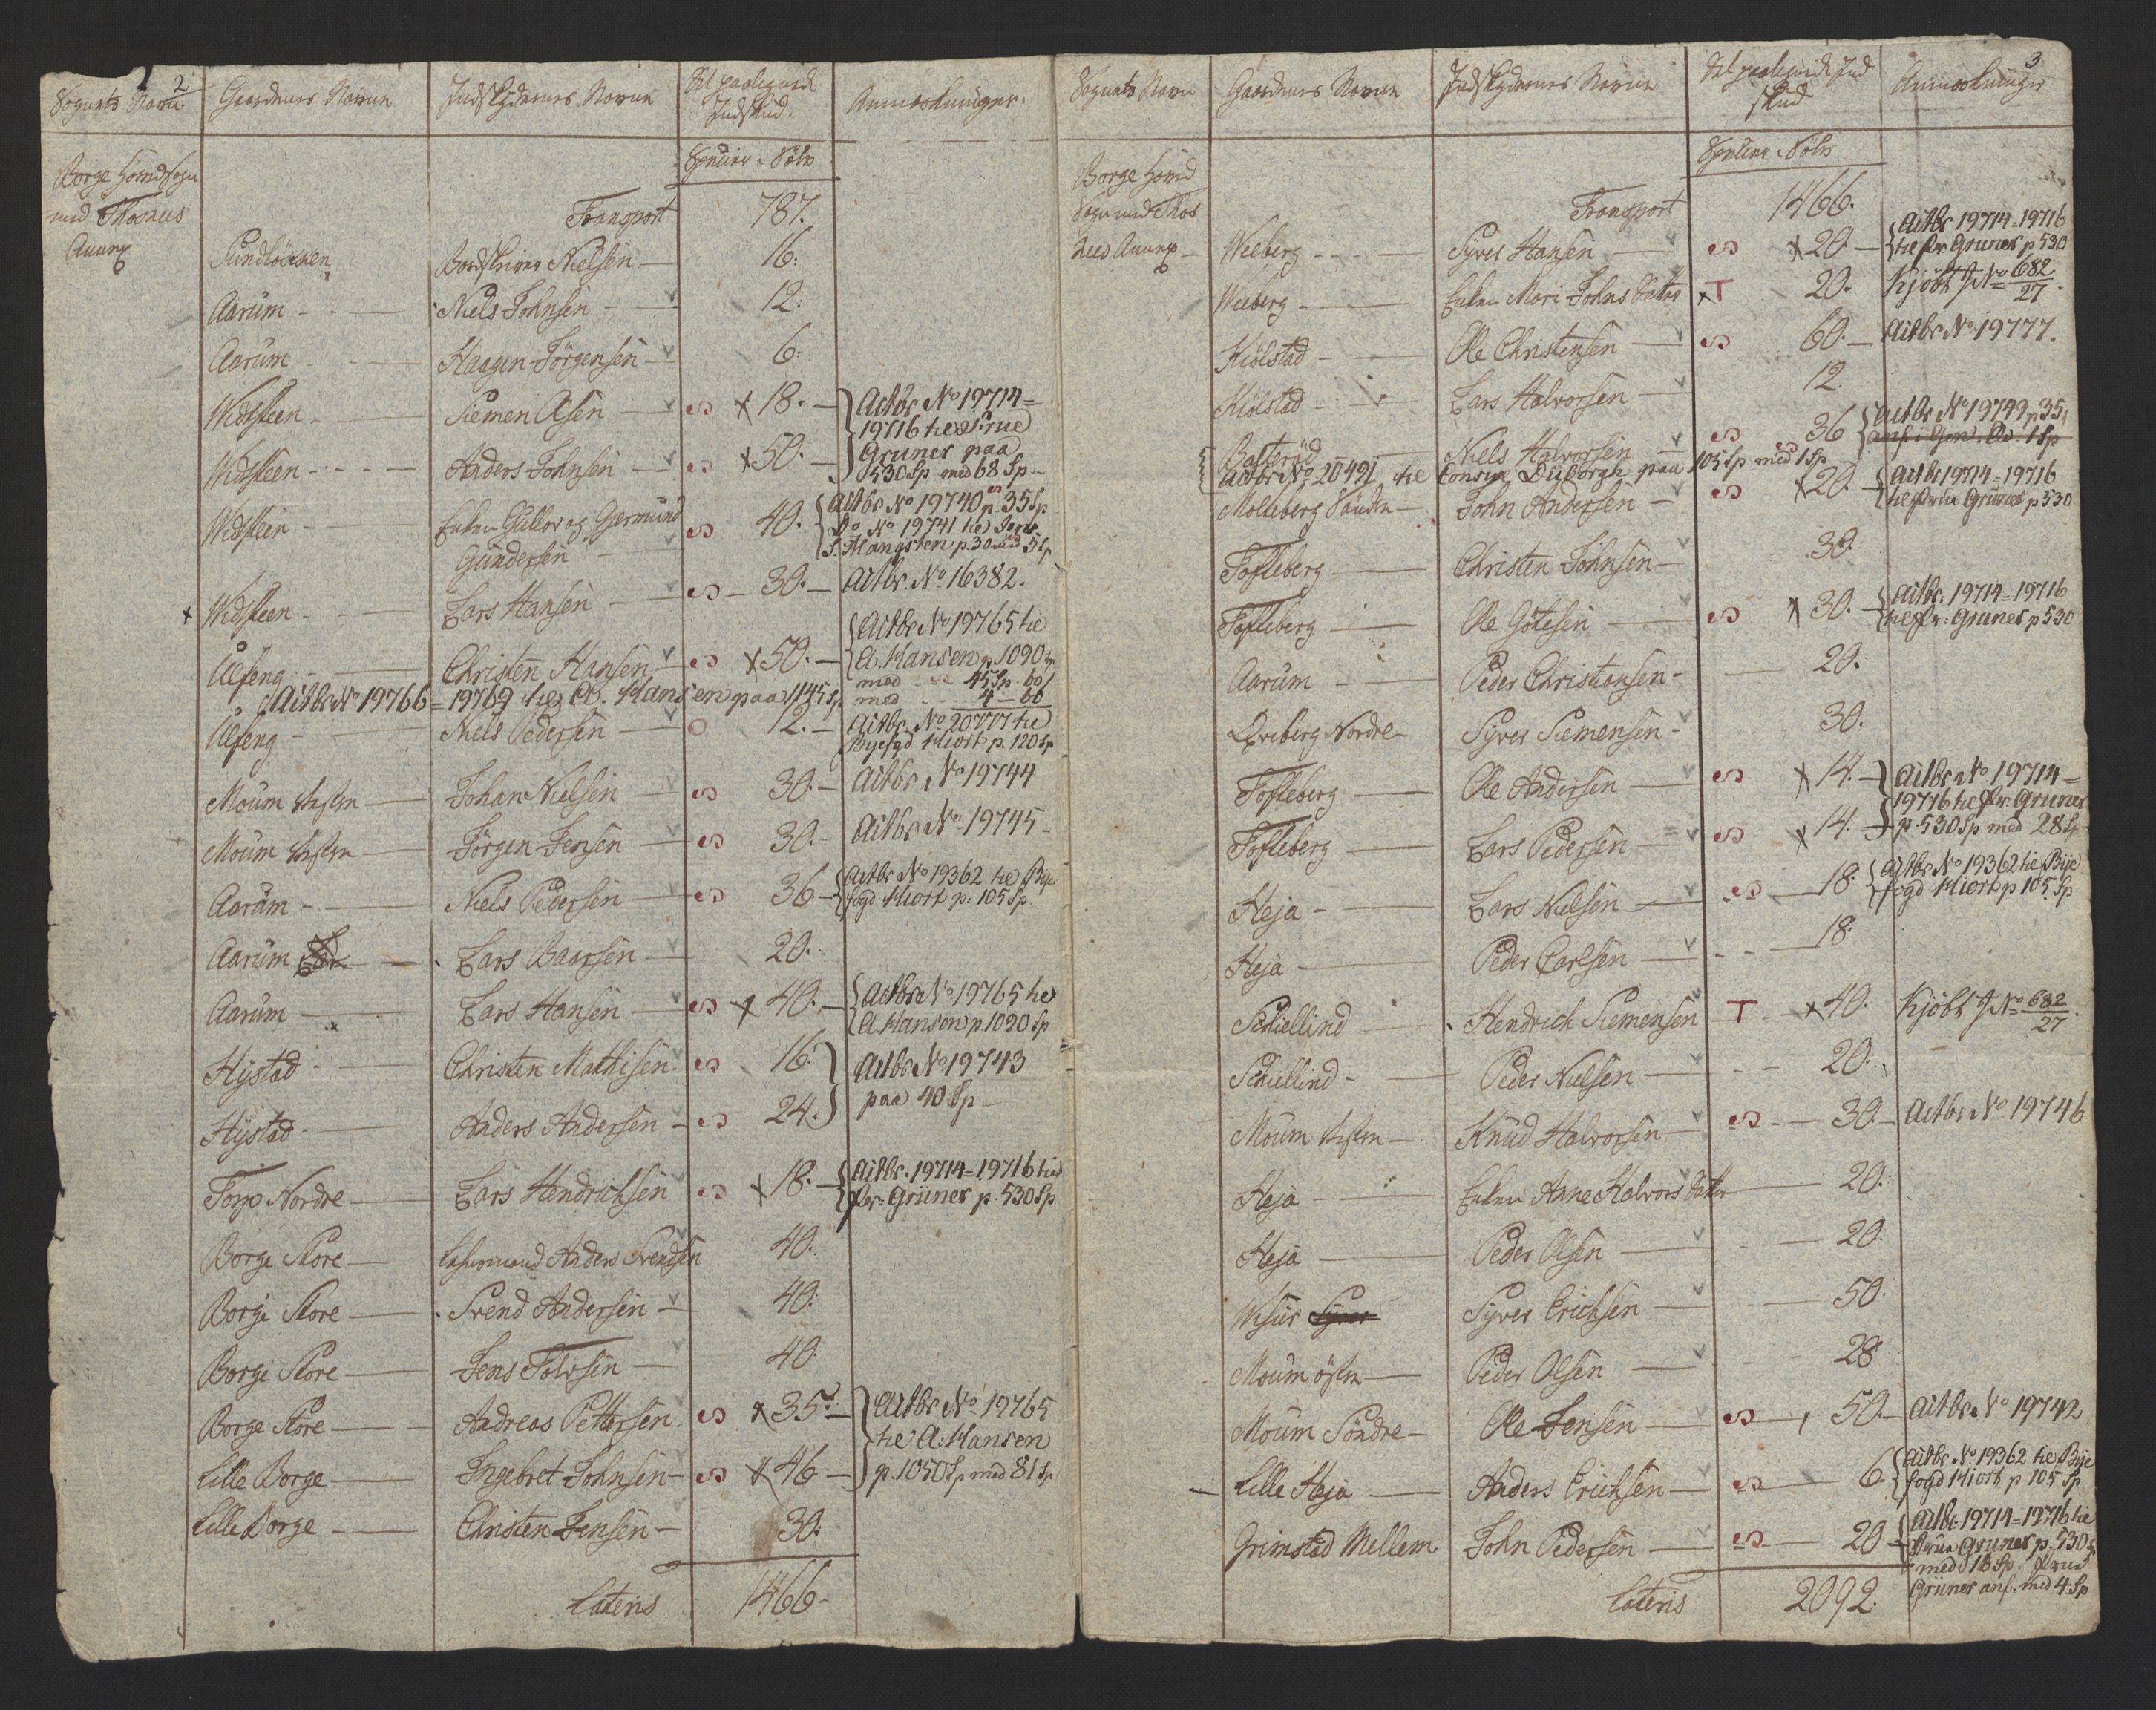 2
Sognets Navn Gaardenes Navne Indskydernes Navne Det paalignede Indskud Anmærkninger
Specier Sölv
Borge Hovedsogn
med Thorsnes
Annex
Transport 787.
Sundlöcken Bordskriver Nielsen 16.
Aarum Niels Johnsen 12.
Aarum Haagen Jörgensen 6.
Widsteen Siemen Olsen S x 18. Actbr No 19714=
19716 til Frue
Widsteen Anders Johnsen S x 50. Gruner paa
530 Sp med 68 Sp
Widsteen Enken Gullov og Gjermund
Gundersen S 40. Actbr No 19740 p. 35 Sp
Do No 19741 til Jens
J. Mangsten p. 30 med 5 Sp
x Widsteen Lars Hansen S 30. Actbr. No 16382.
Ulfeng Christen Hansen S x 50. Actbr No 19765 til
A. Hansen p. 1090 Sp
med 45 Sp. 60
Actbr No 19766=19769 til A. Hansen paa 1145 Sp med 4 - 60
Ulfeng Niels Pedersen 12. Actbr. No 20717 til
Byefgd Hiort p. 120 Sp
Moum Vesten Johan Nielsen S 30. Actbr No 19744
Moum Vesten Jörgen Jensen S 30. Actbr No 19745
Aarum Niels Pedersen S 36 Actbr No 19362 til Bye
fogd Hiort p. 105 Sp.
Aarum Lars Baarsen 20.
Aarum Lars Hansen S x 40. Actbr No 19765 til
A. Hansen p. 1090 Sp
Hystad Christen Mathisen S 16. Actbr No 19743
Hystad Anders Andersen S 24. paa 40 Sp
Torp Nordre Lars Hendrichsen S x 18. Actbr. 19714=19716 til
Fr. Gruner p. 530 Sp
Borge Store Lehnsmand Anders Svendsen 40.
Borge Store Svend Andersen 40.
Borge Store Jens Tolvsen 40.
Borge Store Andreas Pettersen S x 35. Actbr No 19765
til A. Hansen
Lille Borge Ingebret Johnsen S x 46 p. 1050 Sp med 81 Sp
Lille Borge Christen Jensen 30.
Lateris 1466
3
Sognets Navn Gaardenes Navne Indskydernes Navne Det paalignede Ind
skud Anmærkninger
Specier Sölv
Borge Hoved
Sogn med Thos
nees Annex
Transport 1466.
Weeberg Syver Hansen S x 20. Actbr 19714=19716
til Fr. Gruner p 530
Weeberg Enken Mari Johns Datter x T 20. Kjöbt J No 682/27.
Kiölstad Ole Christensen S 60. Actbr No 19777.
Kiölstad Lars Halvorsen 12
Batteröd Niels Halvorsen S 36 Actbr No 19749 p. 35
anf. i Gen. Qv. 1 Sp
Actbr No 20491 til Consul Duborgh paa 105 Sp med 1 Sp
Molleberg Sönden John Andersen S x 20. Actbr 19714=19716
til Frue Gruner p 530
Tofteberg Christen Johnsen 30.
Tofteberg Ole Götesen S x 30. Actbr. 19714=19716
til Fr. Gruner p 530
Aarum Peder Christiansen 20.
Qveberg Nordre Syver Siemensen 30.
Tofteberg Ole Andersen S x 14. Actbr No 19714=
19716 til Fr. Gruner
Tofteberg Lars Pedersen S x 14. p. 530 Sp med 28 Sp
Heja Lars Nielsen S 18. Actbr No 19362 til Bye
fogd Hiort p 105 Sp
Heja Peder Carlsen 18.
Schiellind Hendrich Siemensen T x 40. Kjöbt J No 682/27.
Schiellind Peder Nielsen 20.
Moum Vesten Knud Halvorsen S 30 Actbr No 19746
Heja Enken Anne Halvors Datter 20.
Heja Peder Olsen 20.
Syver Erichsen 50.
Moum östen Peder Olsen 28
Moum Söndre Ole Jensen S 50. Actbr No 19742
Lille Heja Anders Erichsen S 6 Actbr. No 19362 til Bye
fogd Hiort p 105 Sp
Grimstad Mellem John Pedersen S 20 Actbr. 19714=19716 til
Frue Gruner p. 530 Sp
med 18 Sp. Frue
Gruner anf. med 4 Sp
Lateris 2092.